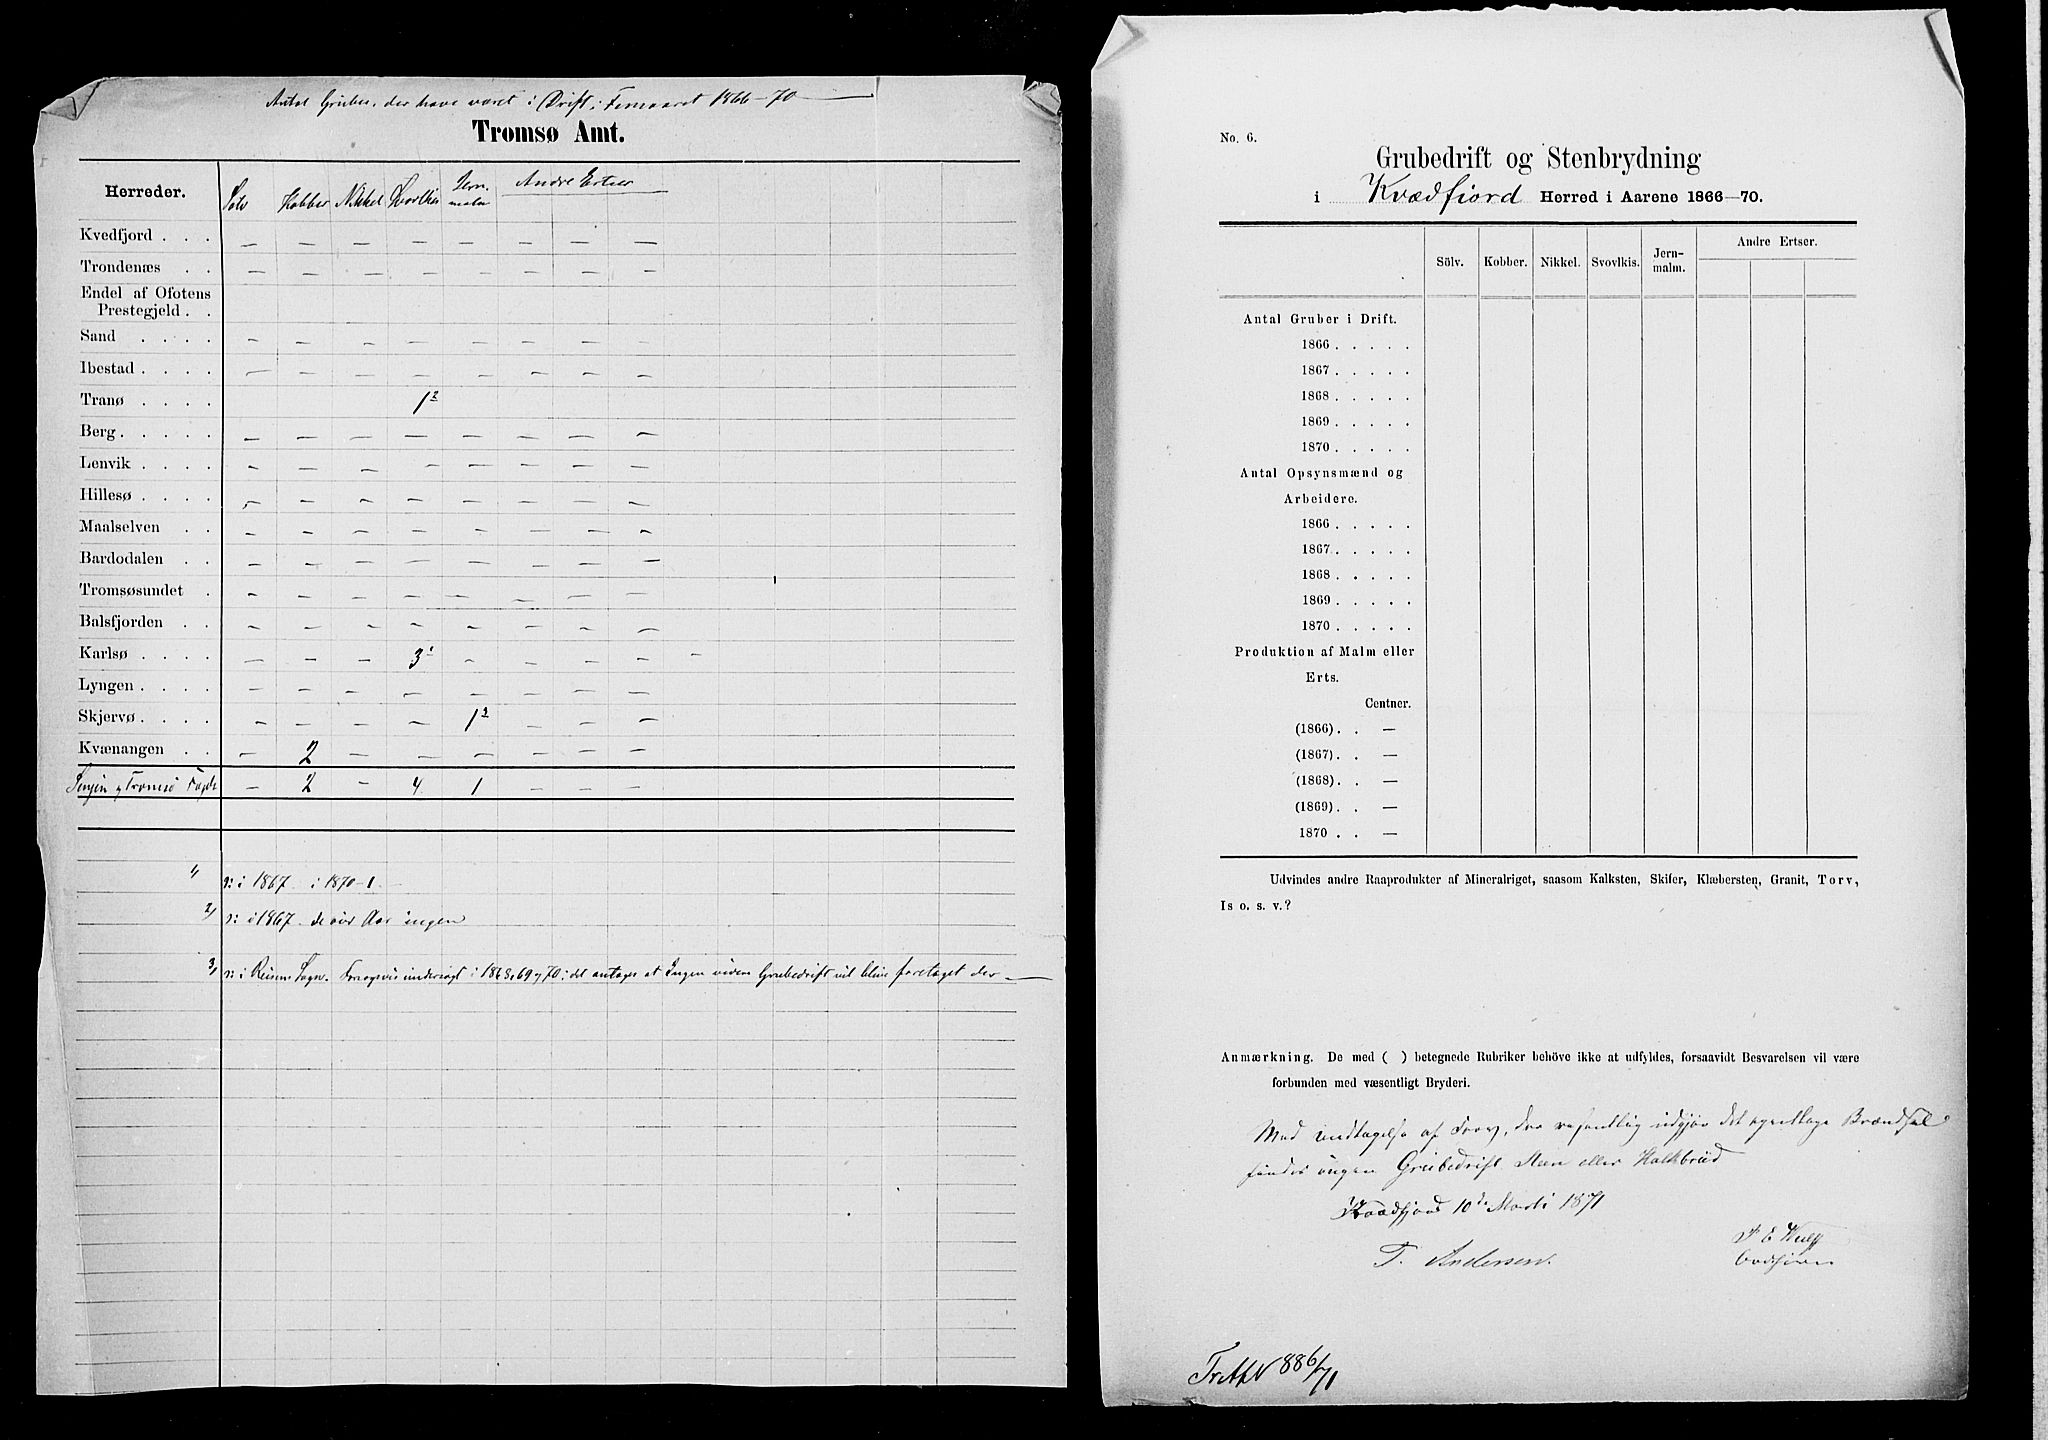 Antal Gruber, der have været i Drift i Femaaret 1866-70
Tromsø Amt.
Herreder. Sølv Kobber Nikkel Svovlkis Jernmalm Andre Ertser
Kvedfjord . . . — — — — — — — —
Trondenæs . . — — — — — — — —
Endel af Ofotens
Prestegjeld . .
Sand . . . . — — — — — — — —
Ibestad . . . . — — — — — — — —
Tranø . . . . 1²
Berg . . . . . — — — — — — — —
Lenvik . . . . — — — — — — — —
Hillesø . . . . — — — — — — — —
Maalselven . . — — — — — — — —
Bardodalen . . — — — — — — — —
Tromsøsundet . — — — — — — — —
Balsfjorden . . — — — — — — — —
Karlsø . . . . — — — 3¹ — — — —
Lyngen . . . . — — — — — — — —
Skjervø . . . . — — — — 1³ — — —
Kvænangen . . — 2 — — — — — —
Senjen og Tromsø Fogde — 2 — 4 1 — — —
1) i 1867 i 1870-1
2) i 1867 de øvr Aar ingen
3) i Reisens Sogn. Forsøgsvis undersøgt i 1868, 69 og 70; det antages at Ingen videre Grubedrift vil blive foretaget der
No. 6.
Grubedrift og Stenbrydning
i Kvædfiord Herred i Aarene 1866—70.
Sölv. Kobber. Nikkel. Svovlkis. Jern-malm. Andre Ertser.
Antal Gruber i Drift.
1866 . . . . .
1867 . . . . .
1868 . . . . .
1869 . . . . .
1870 . . . . .
Antal Opsynsmænd og
Arbeidere.
1866 . . . . .
1867 . . . . .
1868 . . . . .
1869 . . . . .
1870 . . . . .
Produktion af Malm eller
Erts.
Centner.
(1866) . . —
(1867) . . —
(1868) . . —
(1869) . . —
1870 . . —
Udvindes andre Raaprodukter af Mineralriget, saasom Kalksten, Skifer, Klæbersten, Granit, Torv,
Is o. s. v.?
Anmærkning. De med ( ) betegnede Rubriker behöve ikke at udfyldes, forsaavidt Besvarelsen vil være
forbunden med væsentligt Bryderi.
Med undtagelse af Torv, der væsentlig udgjør det egentlige Brændsel
findes ingen Grubedrift Sten eller Kalkbrud
Kvædfjord 10de Marts 1871
T. Andersen.
886/71